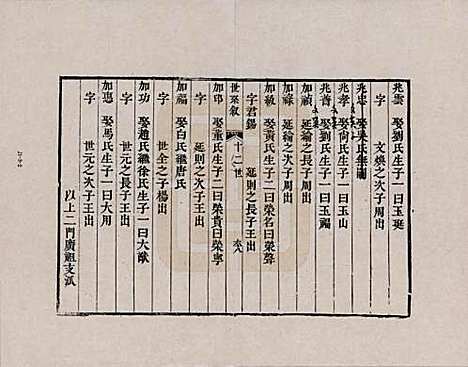 兆雲　娶劉氏生子一曰玉延
文煥之次子周出
兆忠　娶吳氏無嗣
兆孝　娶尙氏生子一曰玉山
兆普　娶劉氏生子一曰玉錫
加禎　延綸之次子周出
加祿　延綸之子周出
加級　娶黃氏生子二曰榮名曰榮聲
字君錫　延則之長子王出
世系敍　十二世
加印　娶董氏生子二曰榮貴曰榮寧
字　延則之次子王出
加福　娶白氏繼唐氏
字　世全之子楊出
加功　娶趙氏繼徐氏生子一曰大猷
字　世元之長子王出
加惠　娶馬氏生子一曰大用
字　世元之次子王出
以上二門廣祖支派